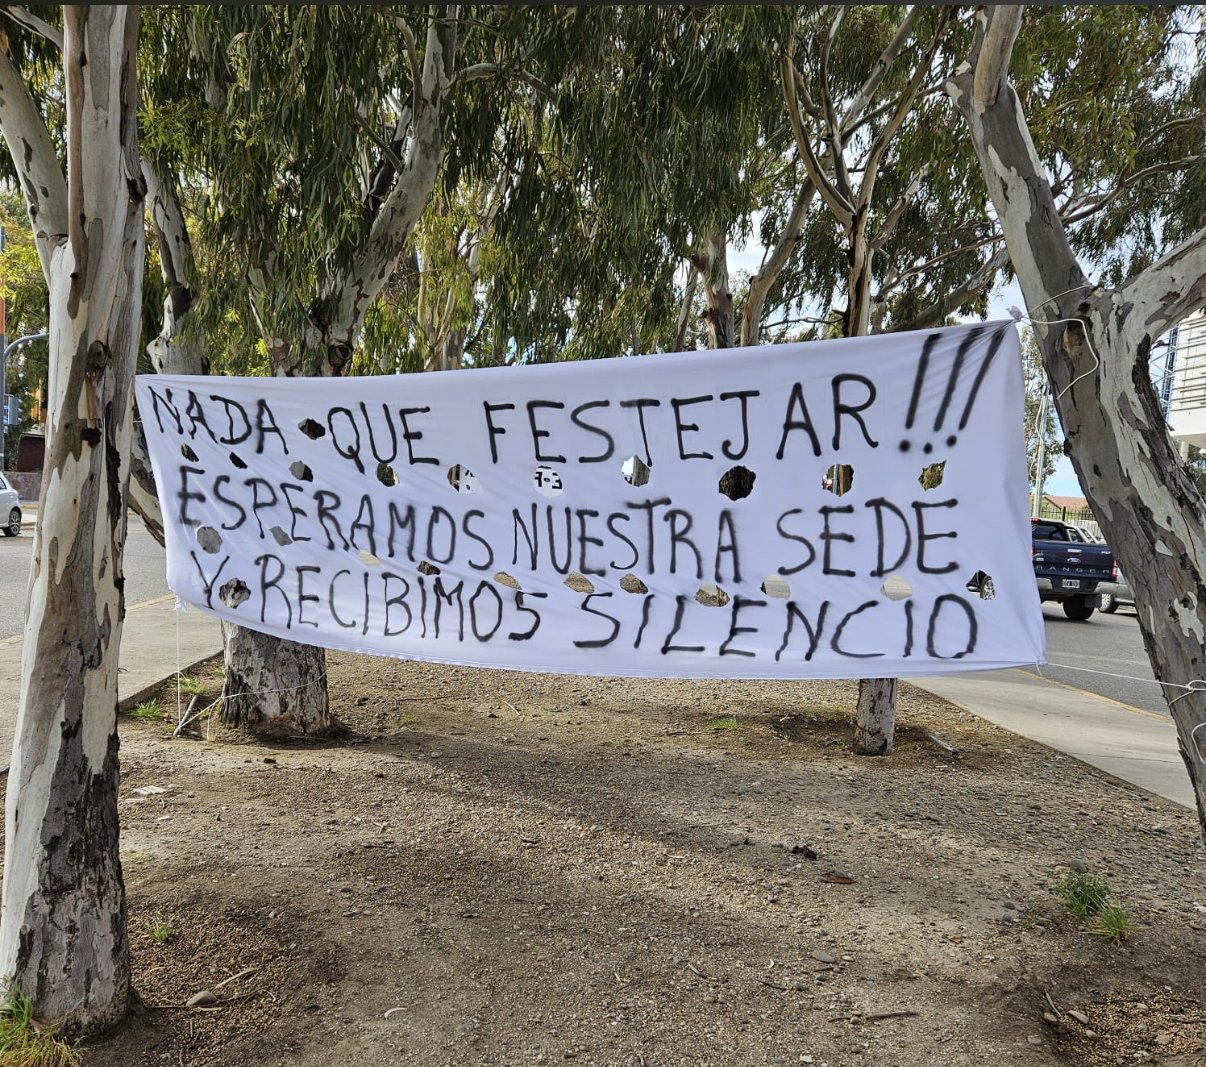 NADA QUE FESTEJAR!!!
ESPERAMOS NUESTRA SEDE
Y RECIBIMOS SILENCIO
RANGER